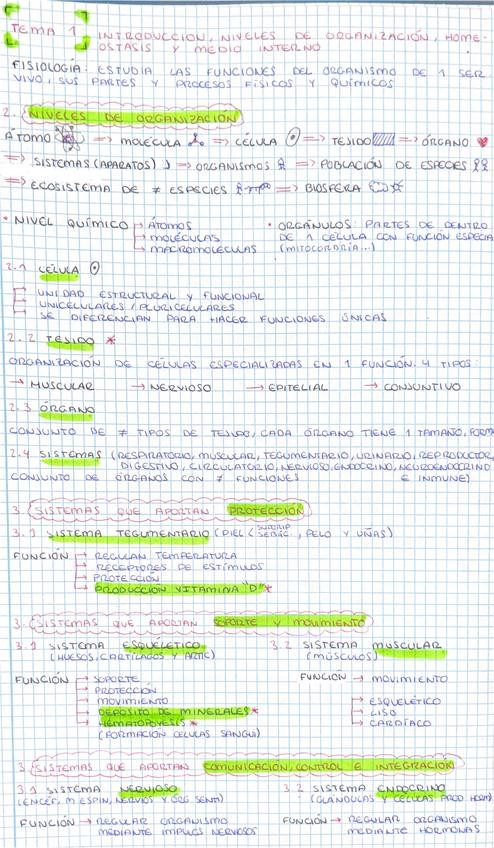 TEMA 1 INTRODUCCION, NIVELES DE ORGANIZACIÓN, HOME-
OSTASIS Y MEDIO INTERNO
FISIOLOGÍA: ESTUDIA LAS FUNCIONES DEL ORGANISMO DE 1 SER
VIVO, SUS PARTES Y PROCESOS FÍSICOS Y QUÍMICOS
2. NIVELES DE ORGANIZACIÓN
ÁTOMO ⇒ MOLÉCULA ⇒ CÉLULA ⇒ TEJIDO ⇒ ÓRGANO
⇒ SISTEMAS (APARATOS) ⇒ ORGANISMOS ⇒ POBLACIÓN DE ESPECIES
⇒ ECOSISTEMA DE ≠ ESPECIES ⇒ BIOSFERA
• NIVEL QUÍMICO → ÁTOMOS • ORGÁNULOS: PARTES DE DENTRO
→ MOLÉCULAS DE 1 CÉLULA CON FUNCIÓN ESPECIA
→ MACROMOLÉCULAS (MITOCONDRIA...)
2.1 CÉLULA
UNIDAD ESTRUCTURAL Y FUNCIONAL
UNICELULARES / PLURICELULARES
SE DIFERENCIAN PARA HACER FUNCIONES ÚNICAS
2.2 TEJIDO *
ORGANIZACIÓN DE CÉLULAS ESPECIALIZADAS EN 1 FUNCIÓN. 4 TIPOS:
→ MUSCULAR → NERVIOSO → EPITELIAL → CONJUNTIVO
2.3 ÓRGANO
CONJUNTO DE ≠ TIPOS DE TEJIDO, CADA ÓRGANO TIENE 1 TAMAÑO, FORMA
2.4 SISTEMAS (RESPIRATORIO, MUSCULAR, TEGUMENTARIO, URINARIO, REPRODUCTOR,
DIGESTIVO, CIRCULATORIO, NERVIOSO, ENDOCRINO, NEUROENDOCRINO
CONJUNTO DE ÓRGANOS CON ≠ FUNCIONES E INMUNE)
3. SISTEMAS QUE APORTAN PROTECCIÓN
3.1 SISTEMA TEGUMENTARIO (PIEL < SEBÁC., PELO Y UÑAS)
FUNCIÓN → REGULAN TEMPERATURA
→ RECEPTORES DE ESTÍMULOS
→ PROTECCIÓN
→ PRODUCCIÓN VITAMINA "D" *
3. SISTEMAS QUE APORTAN SOPORTE Y MOVIMIENTO
3.1 SISTEMA ESQUÉLETICO 3.2 SISTEMA MUSCULAR
(HUESOS, CARTÍLAGOS Y ARTIC) (MÚSCULOS)
FUNCIÓN → SOPORTE FUNCIÓN → MOVIMIENTO
→ PROTECCIÓN
→ MOVIMIENTO → ESQUELÉTICO
→ DEPÓSITO DE MINERALES * → LISO
→ HEMATOPOYESIS * → CARDÍACO
(FORMACIÓN CÉLULAS SANGUI)
3. SISTEMAS QUE APORTAN COMUNICACIÓN, CONTROL E INTEGRACIÓN
3.1 SISTEMA NERVIOSO 3.2 SISTEMA ENDOCRINO
(ENCÉF, M ESPIN, NERVIOS Y ORG SENT) (GLÁNDULAS Y CÉLULAS PROD HORM)
FUNCIÓN → REGULAR ORGANISMO FUNCIÓN → REGULAR ORGANISMO
MEDIANTE IMPULS NERVIOSOS MEDIANTE HORMONAS